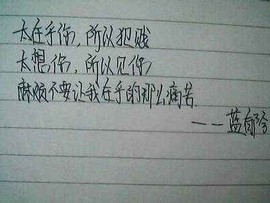 太在乎你，所以犯贱
太想你，所以见你
麻烦不要让我在乎的那么痛苦
——蓝